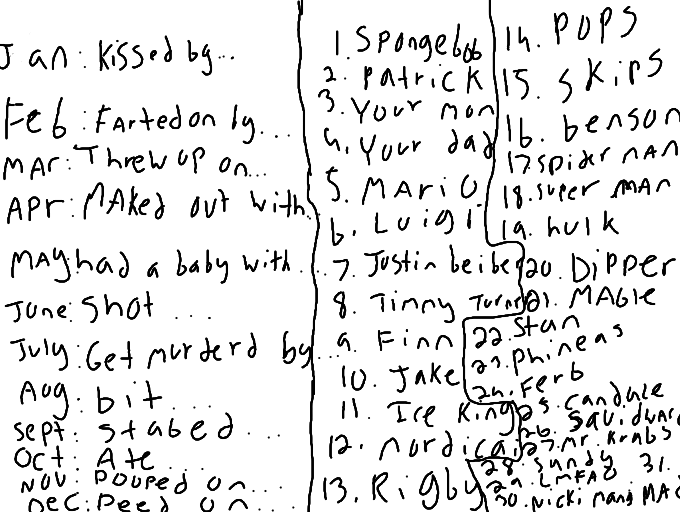 Jan: Kissed by...
Feb: Farted on by...
MAr: Threw up on...
APr: MAked out with.
MAy: had a baby with....
June: Shot ...
July: Get murderd by...
Aug: bit ....
sept: stabed ...
Oct: Ate....
Nov: Pooped on....
Dec: Peed on...
1. Spongebob
2. Patrick
3. Your mom
4. Your dad
5. MAriO
6. Luigi
7. Justin beiber
8. Timmy Turner
9. Finn
10. Jake
11. Ice King
12. mordicai
13. Rigby
14. POPS
15. skips
16. benson
17. spider mAN
18. super mAn
19. hulk
20. DiPPER
21. MABle
22. Stan
23. Phineas
24. Ferb
25. Candace
26. Squidward
27. mr. Krabs
28. Sandy
29. LMFAO
30. Nicki
31.